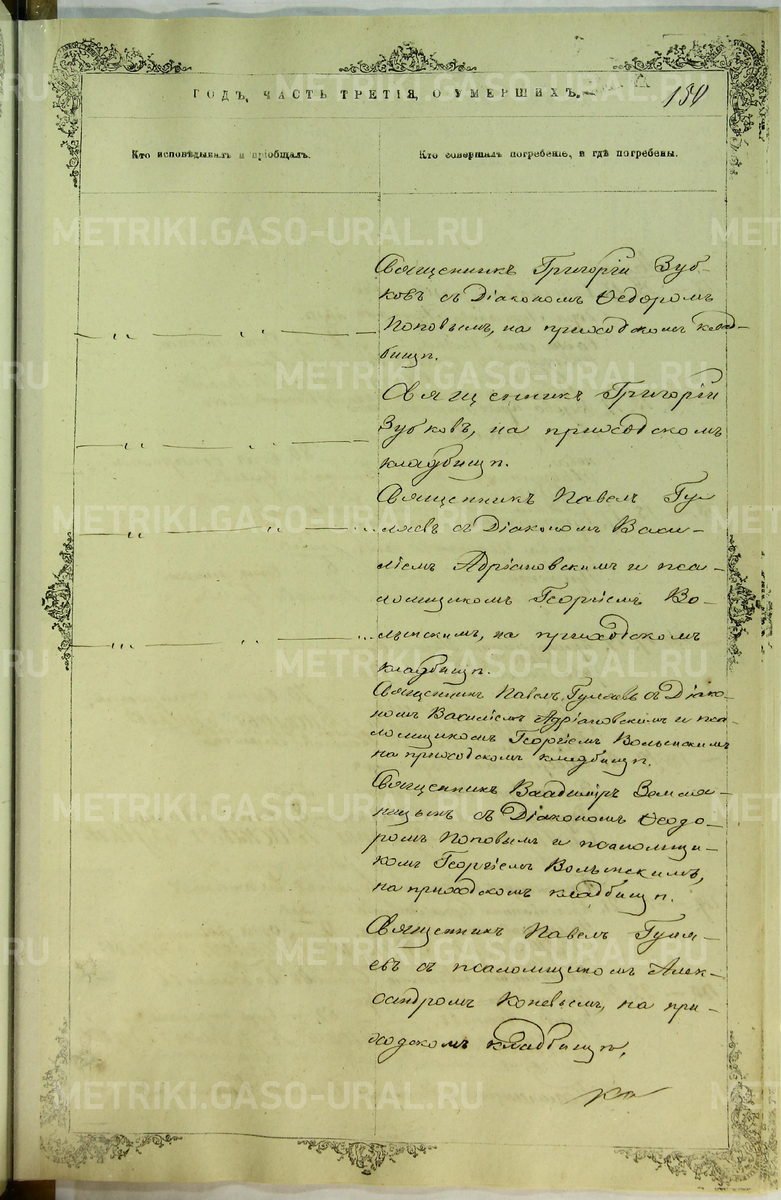 ГОДЪ, ЧАСТЬ ТРЕТІЯ, О УМЕРШИХЪ.
150
Кто исповѣдывалъ и пріобщалъ.
Кто совершалъ погребеніе, и гдѣ погребены.
METRIKI.GASO-URAL.RU
Священникъ Григорій Зуб-
ковъ съ Діакономъ Ѳедоромъ
Поповымъ, на приходскомъ клад-
бищѣ.
Священникъ Григорій
Зубковъ, на приходскомъ
кладбищѣ.
Священникъ Павелъ Гу
ляевъ съ Діакономъ Васи-
ліемъ Адріановскимъ и пса-
ломщикомъ Георгіемъ Во-
лынскимъ, на приходскомъ
кладбищѣ.
Священникъ Павелъ Гуляевъ съ Діако-
номъ Василіемъ Адріановскимъ и пса-
ломщикомъ Георгіемъ Волынскимъ
на приходскомъ кладбищѣ.
Священникъ Владиміръ Земля-
ницынъ съ Діакономъ Ѳеодо-
ромъ Поповымъ и псаломщи-
комъ Георгіемъ Волынскимъ,
на приходскомъ кладбищѣ.
Священникъ Павелъ Гуля-
евъ съ псаломщикомъ Алек-
сандромъ Коневымъ, на при-
ходскомъ кладбищѣ,